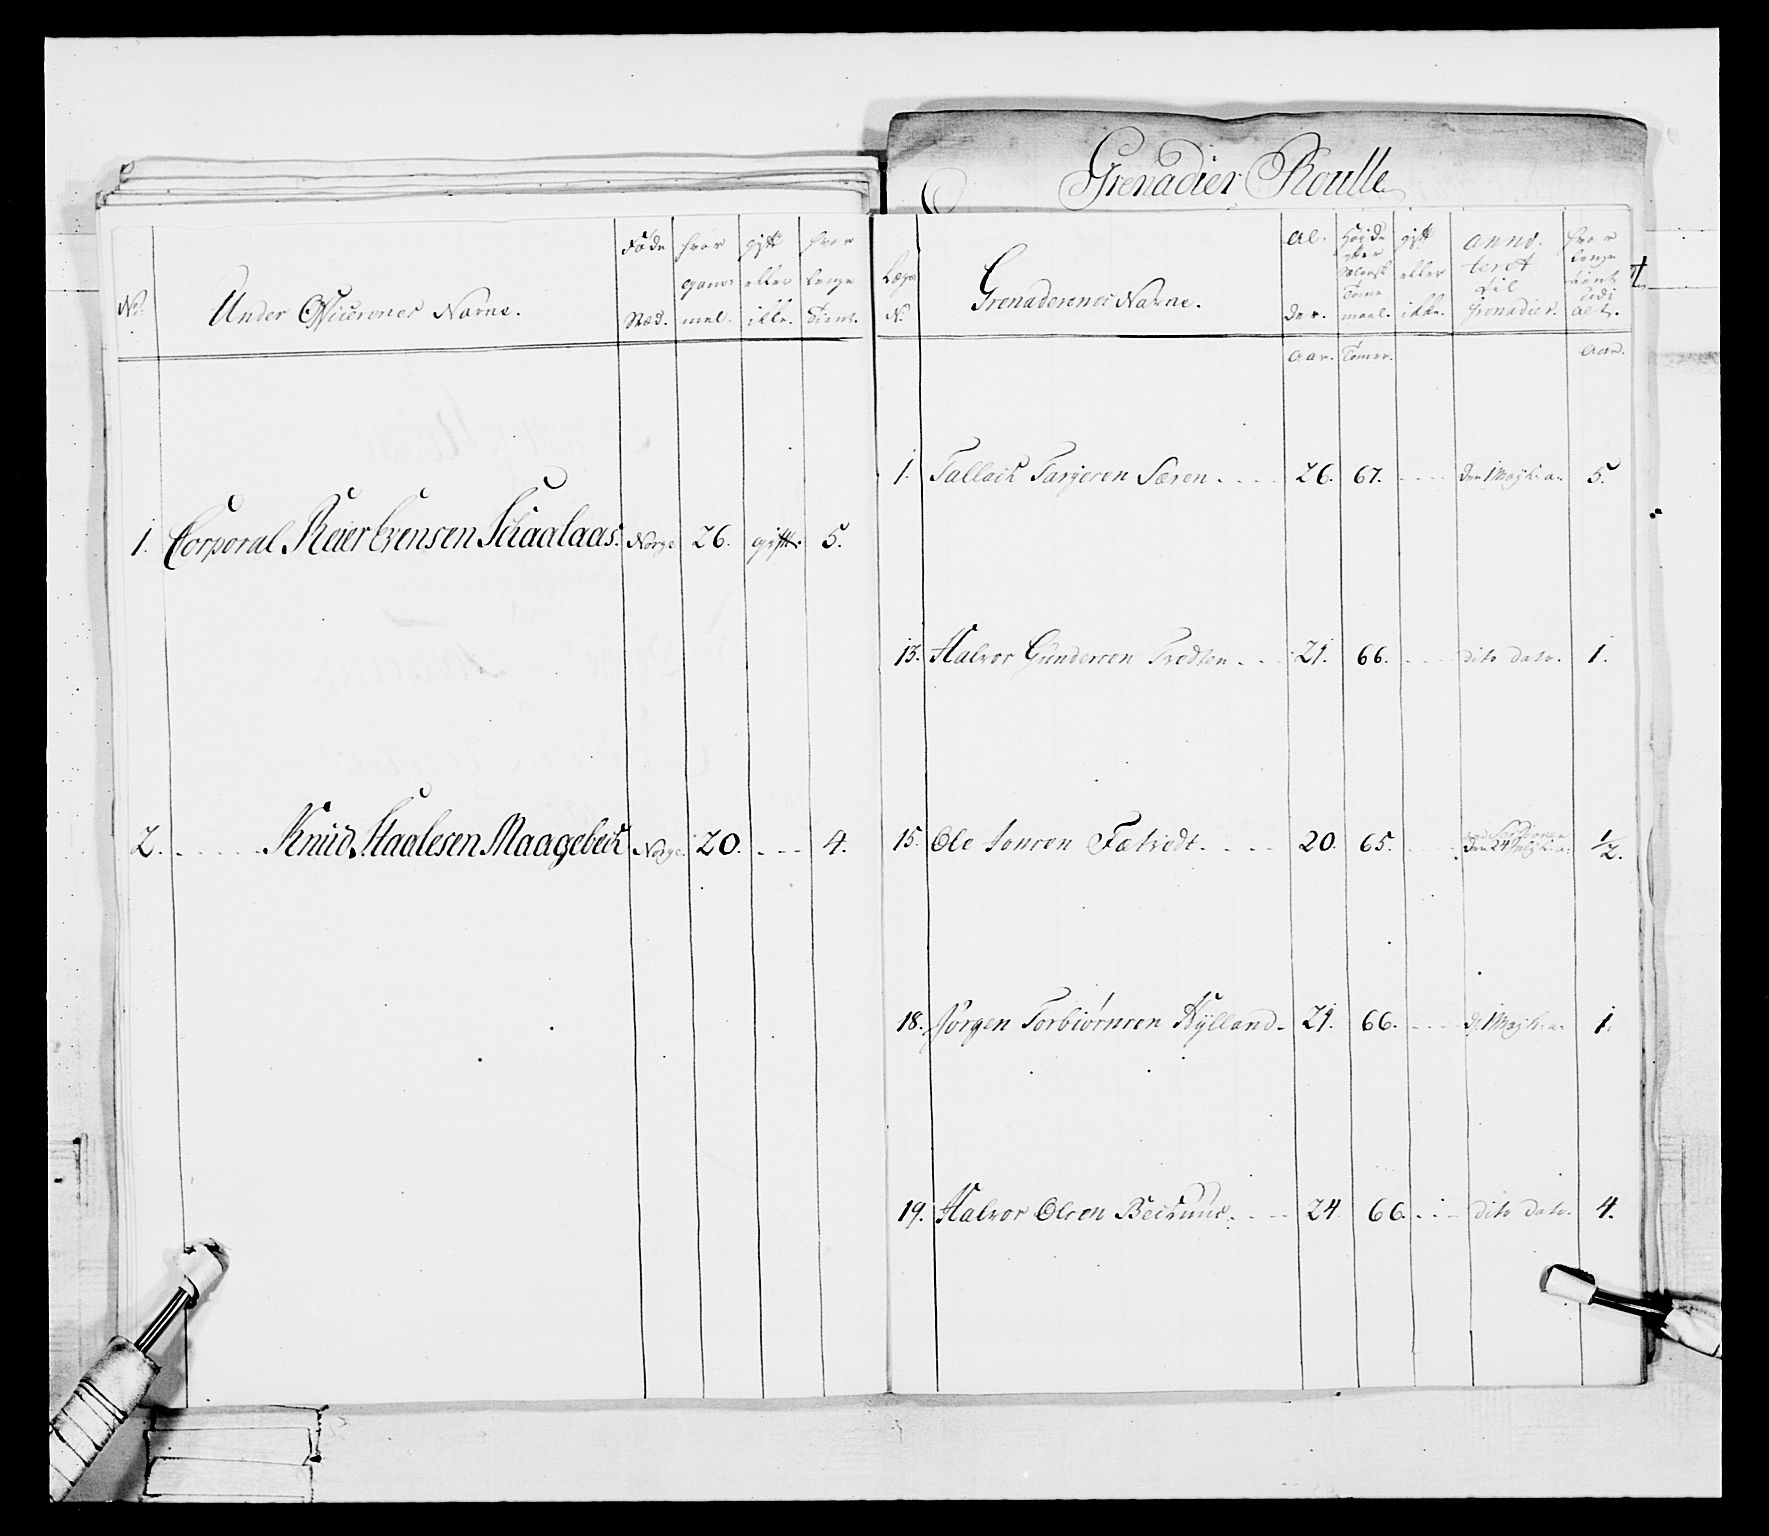 Grenadier Roulle
No. Under Officerernes Navne. Føde Stæd. hvor gam̅el. gift eller ikke. hvor lenge tient.
1. Corporal Reier Evensen Schaalaas. Norge 26. gift. 5.
2. Knud Staalesen Maagebech Norge. 20. 4.
Lægs No. Grenaderernes Navne. Alder. Høyde gift eller ikke. anno teret til Grenadier. hvor lenge tient udi alt.
Aar. Tomer. Aar.
1. Tallach Targesen Særen 26. 67. den 1 Maÿ h: a: 5.
13. Halvor Gundersen Tvedten 21. 66. dito dato. 1.
15. Ole Jonsen 20. 65. 1/2.
18. Jørgen Torbiørnsen Kÿlland 21. 66. d: 1 Maÿ h: a: 1.
19. Halvor Olsen 24 66. dito dato. 4.